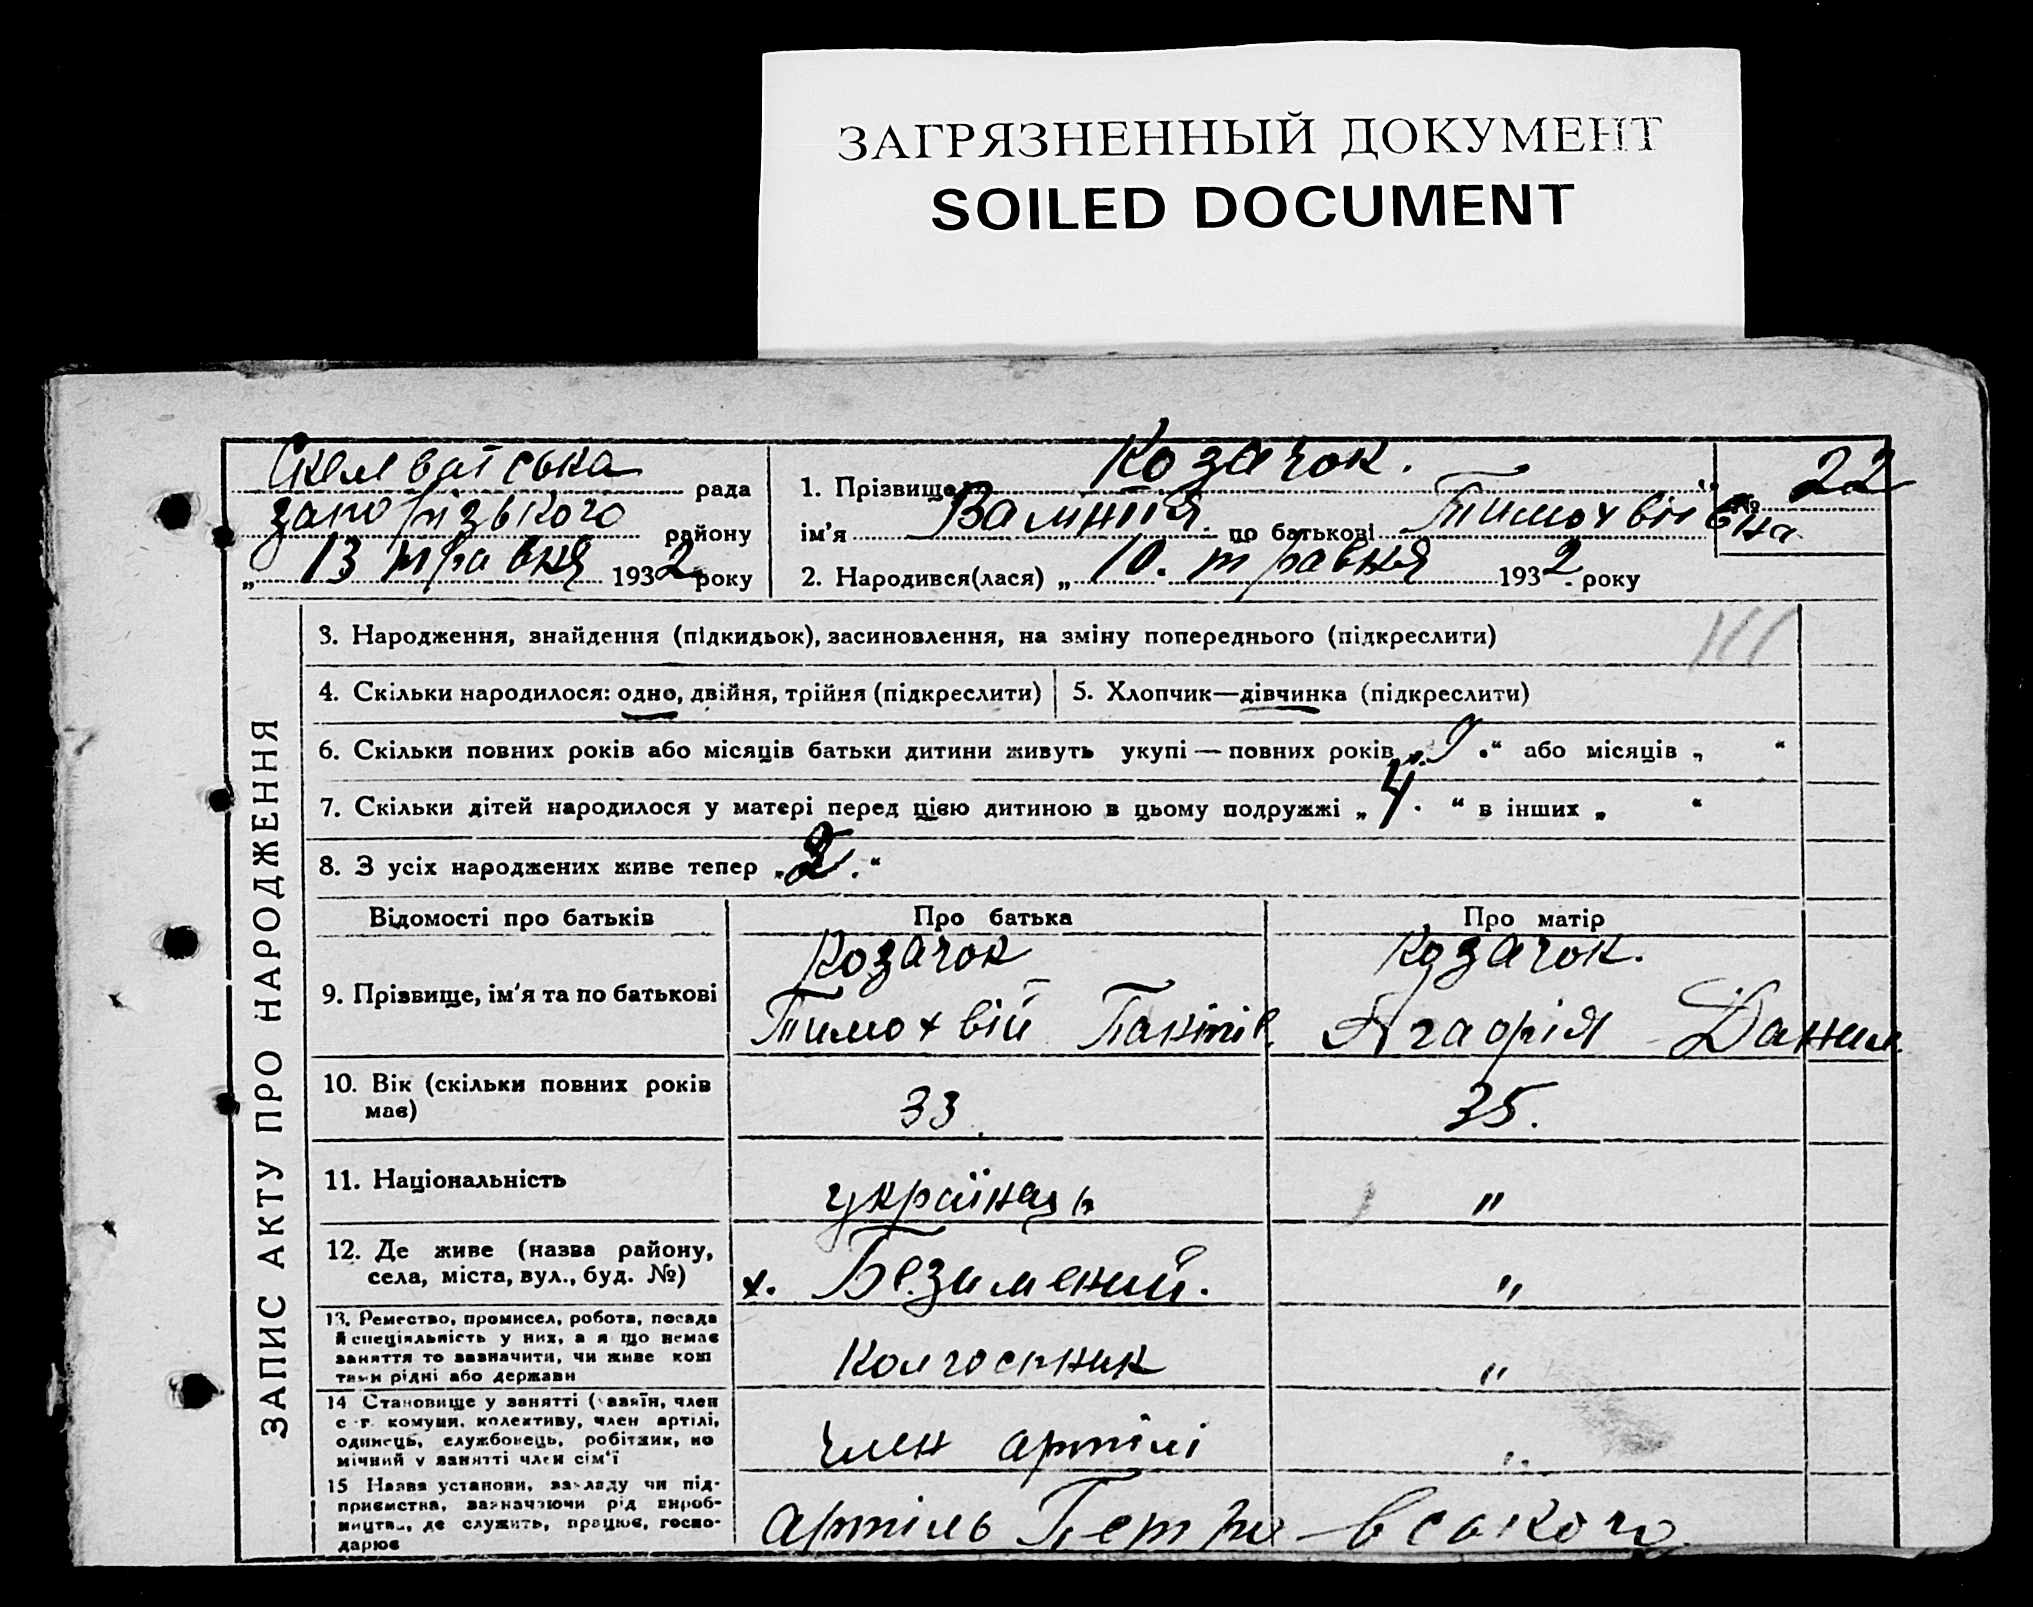 ЗАГРЯЗНЕННЫЙ ДОКУМЕНТ
SOILED DOCUMENT
рада
запорізького району
„ 13 травня 1932 року
1. Прізвище Козачок.
ім'я по батькові Тимохвіївна
2. Народився(лася) „ 10. травня 1932. року
№ 22
ЗАПИС АКТУ ПРО НАРОДЖЕННЯ
3. Народження, знайдення (підкидьок), засиновлення, на зміну попереднього (підкреслити)
4. Скільки народилося: одно, двійня, трійня (підкреслити)
5. Хлопчик—дівчинка (підкреслити)
6. Скільки повних років або місяців батьки дитини живуть укупі — повних років „ 9 .“ або місяців „ “
7. Скільки дітей народилося у матері перед цією дитиною в цьому подружжі „ 4. “ в інших „ “
8. З усіх народжених живе тепер „ 2. “
Відомості про батьків
Про батька
Про матір
9. Прізвище, ім'я та по батькові
Козачок
Тимохвій
Козачок.
Агафія Данил.
10. Вік (скільки повних років
має)
33
35.
11. Національність
українець
"
12. Де живе (назва району,
села, міста, вул., буд. №)
х. Безимений.
"
13. Ремество, промисел, робота, посада
й спеціяльність у них, а якщо немає
заняття то зазначити, чи живе кош
тами рідні або держави
Колгоспник
"
14 Становище у занятті (хазяїн, член
с.-г. комуни, колективу, член артілі,
одинець, службовець, робітник, по
мічний у занятті член сім'ї
член артілі
"
15 Назва установи, закладу чи під-
приємства, зазначаючи рід вироб-
ництва, де служить, працює, госпо-
дарює
артіль Петровського